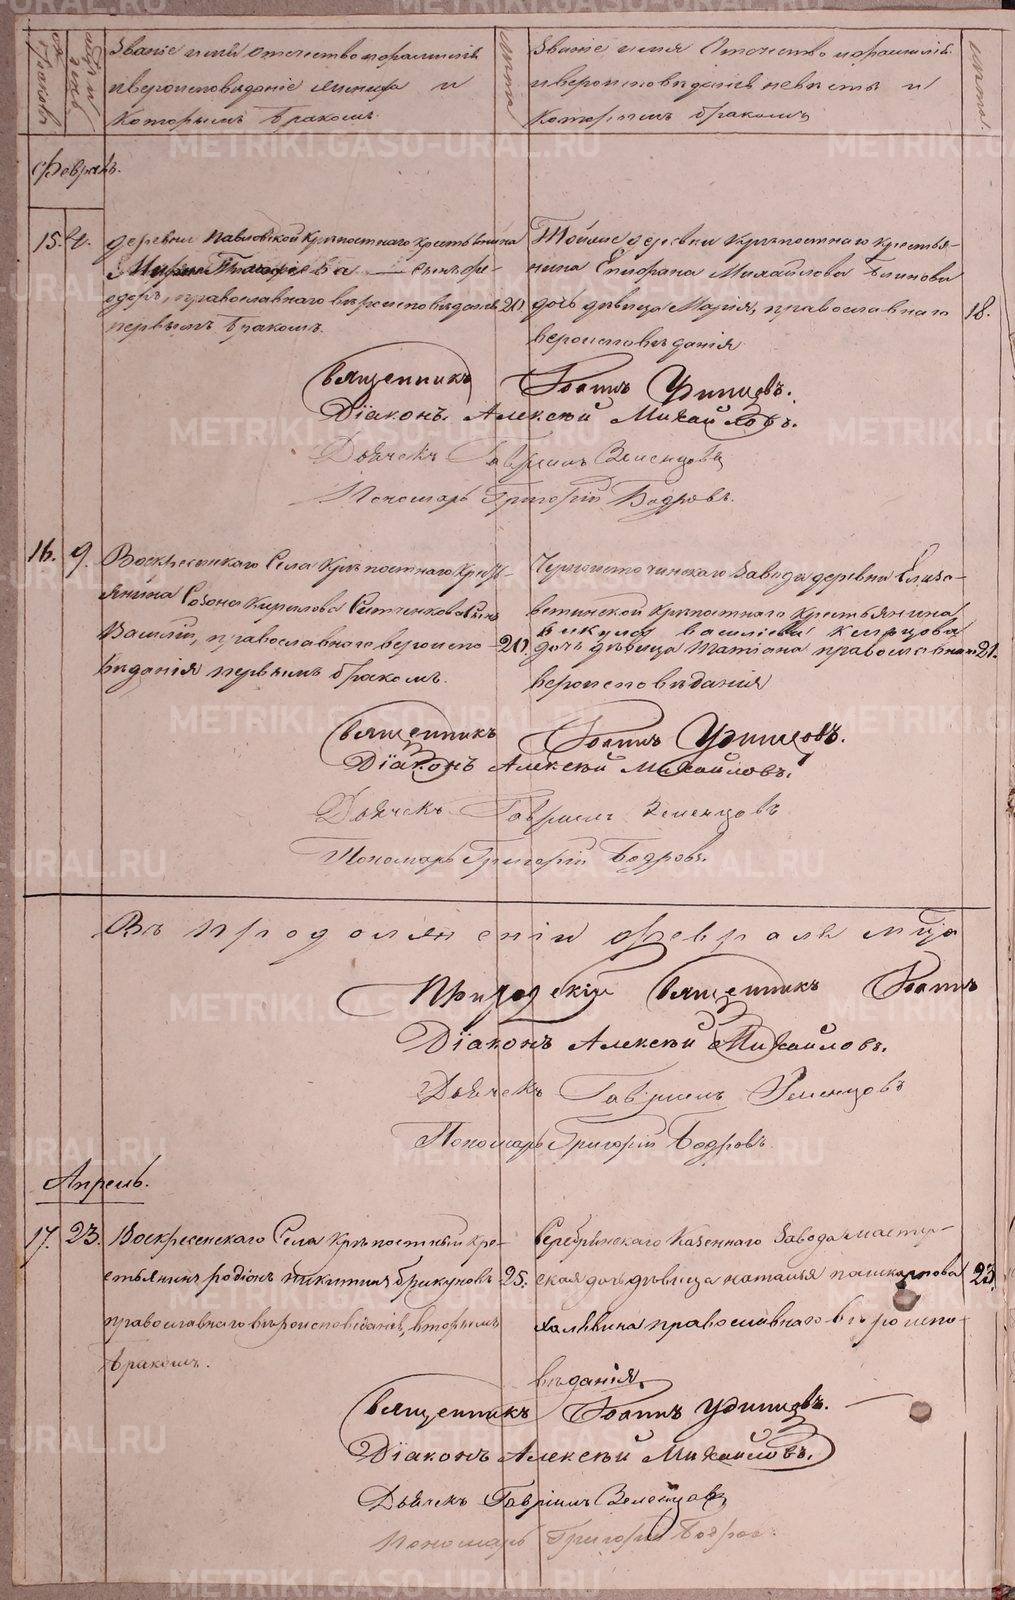 Званіе имя отечество и фамилія
и вероисповиданіе жениха и
Которымъ бракомъ.
Лѣта
Званіе имя Отечество и фамилія
и вероисповиданіе невесты и
Которымъ бракомъ
лѣта.
Февраль.
15. 4. деревни Павловской Крѣпостнаго крестьянина
сынъ Фе-
одоръ, православнаго вѣроисповѣданія 20.
первымъ бракомъ.
Той же деревни Крѣпостнаго крестья-
нина Михайлова
дочь дѣвица Марія, православнаго 18.
вероисповѣданія
Священникъ Іоаннъ Удинцовъ.
Діаконъ Алексѣй Михайловъ.
Дьячекъ Гавріилъ Зеленцовъ
Пономарь Григорій Бодровъ.
16. 9. Воскресенскаго Села Крѣпостнаго Кресть-
янина Созона Кирилова Ситченкова Сынъ
Василій, православнаго вероиспо- 20.
вѣданія первымъ бракомъ.
Черноисточинскаго Завода деревни Елиза-
ветинской Крѣпостнаго Крестьянина
Викула Василіева
дочь дѣвица Татіана православнаго 21.
вероисповѣданія
Священникъ Іоаннъ Удинцовъ.
Діаконъ Алексѣй Михайловъ.
Дьячекъ Гавріилъ Зеленцовъ
Пономарь Григорій Бодровъ.
Въ продолженіи Февраля мца
Приходскій Священникъ Іоаннъ
Діаконъ Алексѣй Михайловъ.
Дьячекъ Гавріилъ Зеленцовъ
Пономарь Григорій Бодровъ.
Апрель.
17. 23. Воскресенскаго Села Крѣпостный кре-
стьянинъ родіонъ никитинъ брикуновъ 25.
православнаго вѣроисповѣданія, вторымъ
бракомъ.
Серебрянскаго Казеннаго Завода мастер-
ская дочь дѣвица наталья поликарпова 23.
Халявина православнаго вѣроиспо-
вѣданія
Священникъ Іоаннъ Удинцовъ.
Діаконъ Алексѣй Михайловъ.
Дьячекъ Гавріилъ Зеленцовъ
Пономарь Григорій Бодровъ.
METRIKI.GASO-URAL.RU